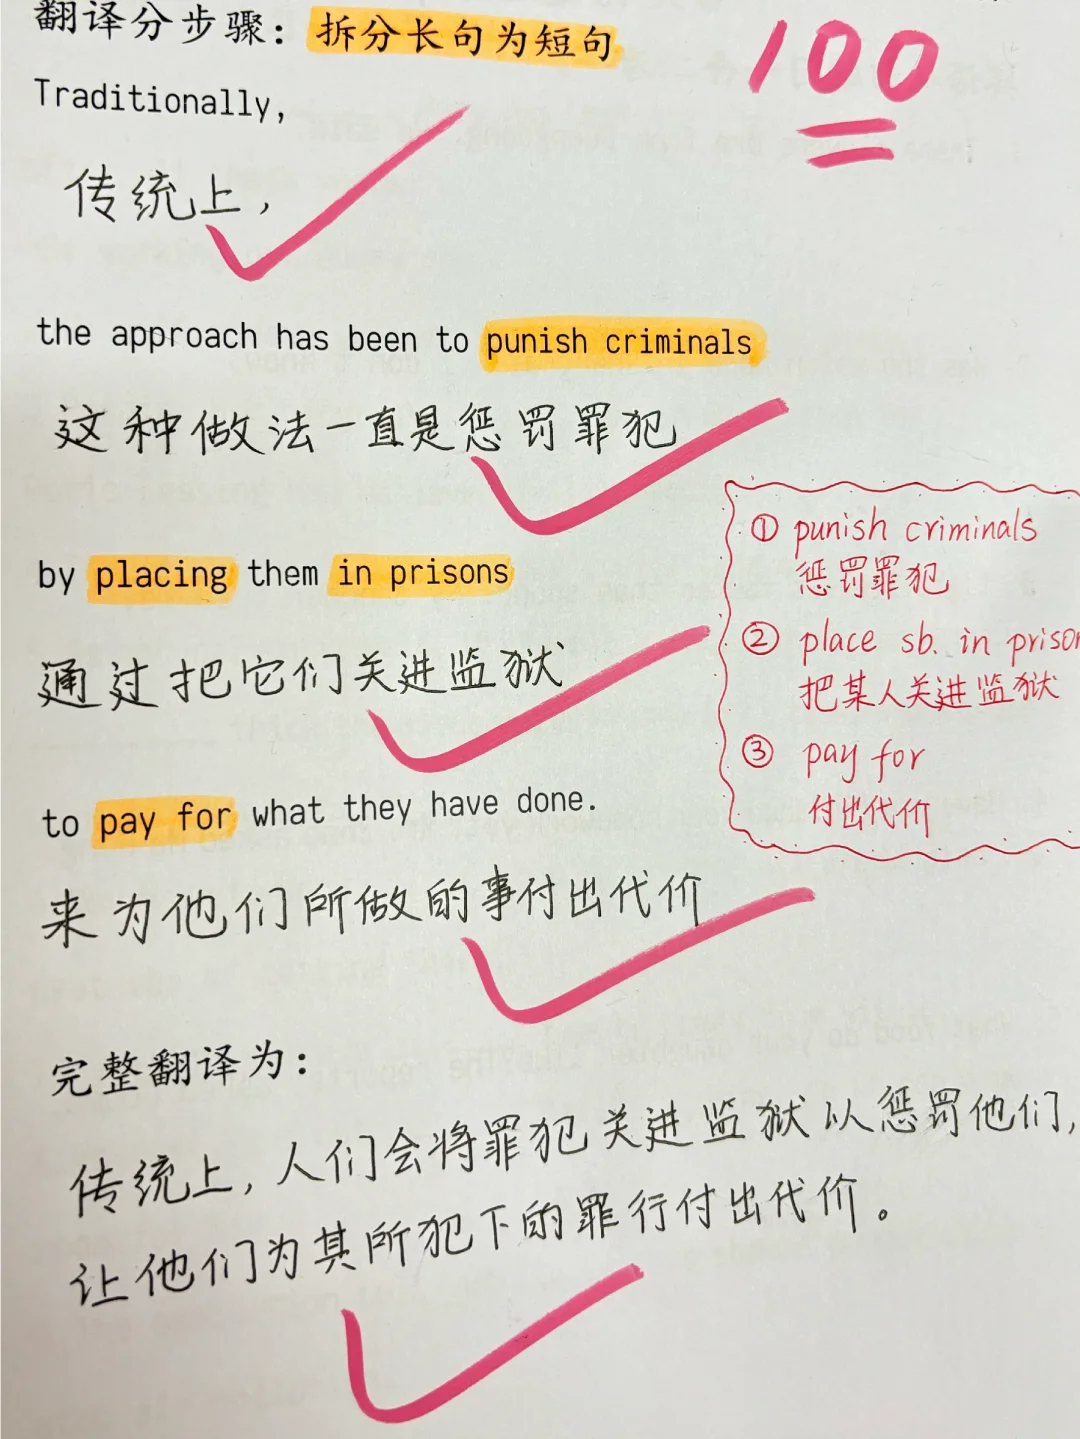 翻译分步骤：拆分长句为短句
100
Traditionally,
传统上，
the approach has been to punish criminals
这种做法一直是惩罚罪犯
by placing them in prisons
通过把它们关进监狱
to pay for what they have done.
来为他们所做的事付出代价
① punish criminals
惩罚罪犯
② place sb. in prison
把某人关进监狱
③ pay for
付出代价
完整翻译为：
传统上，人们会将罪犯关进监狱以惩罚他们，
让他们为其所犯下的罪行付出代价。